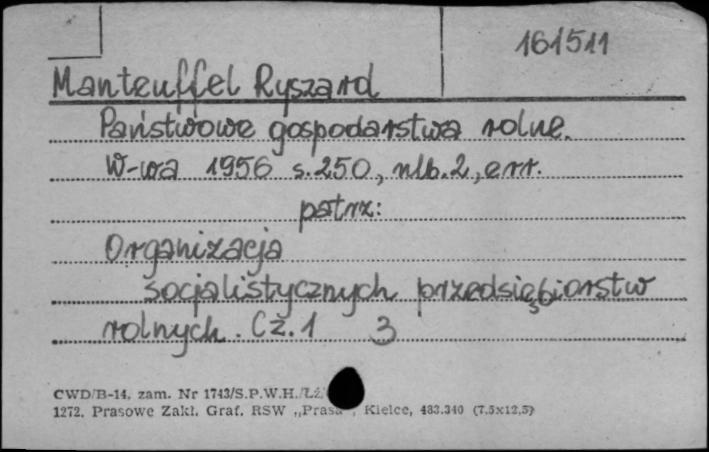 161511
Manteuffel Ryszard
Państwowe gospodarstwa rolne.
W-wa 1956 s.250, nlb.2, err.
patrz:
Organizacja
socjalistycznych przedsiębiorstw
rolnych. Cz.1 3
CWD/B-14, zam. Nr 1743/S.P.W.H./Łź
1272. Prasowe Zakł. Graf. RSW „Prasa", Kielce, 483.340 (7,5x12,5)